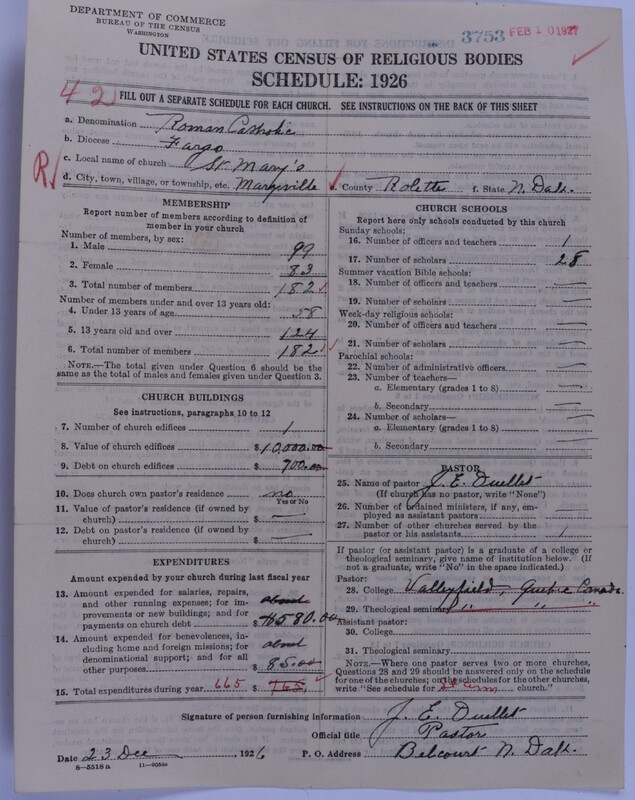 DEPARTMENT OF COMMERCE
BUREAU OF THE CENSUS
WASHINGTON
3753 FEB 10 1927
UNITED STATES CENSUS OF RELIGIOUS BODIES
SCHEDULE: 1926
42
FILL OUT A SEPARATE SCHEDULE FOR EACH CHURCH. SEE INSTRUCTIONS ON THE BACK OF THIS SHEET
a. Denomination Roman Catholic
b. Diocese Fargo
c. Local name of church St. Mary's
R
d. City, town, village, or township, etc. Marysville e. County Rolette f. State N. Dak.
MEMBERSHIP
Report number of members according to definition of member in your church
Number of members, by sex:
1. Male 99
2. Female 83
3. Total number of members 182
Number of members under and over 13 years old:
4. Under 13 years of age 58
5. 13 years old and over 124
6. Total number of members 182
NOTE.—The total given under Question 6 should be the same as the total of males and females given under Question 3.
CHURCH BUILDINGS
See instructions, paragraphs 10 to 12
7. Number of church edifices 1
8. Value of church edifices $10,000.00
9. Debt on church edifices $ 700.00
10. Does church own pastor's residence no
Yes or No
11. Value of pastor's residence (if owned by church) $ —
12. Debt on pastor's residence (if owned by church) $ —
EXPENDITURES
Amount expended by your church during last fiscal year
13. Amount expended for salaries, repairs, and other running expenses; for improvements or new buildings; and for payments on church debt about $ 580.00
14. Amount expended for benevolences, including home and foreign missions; for denominational support; and for all other purposes about $ 85.00
15. Total expenditures during year 665 $ 765
CHURCH SCHOOLS
Report here only schools conducted by this church
Sunday schools:
16. Number of officers and teachers 1
17. Number of scholars 28
Summer vacation Bible schools:
18. Number of officers and teachers —
19. Number of scholars —
Week-day religious schools:
20. Number of officers and teachers —
21. Number of scholars —
Parochial schools:
22. Number of administrative officers —
23. Number of teachers—
a. Elementary (grades 1 to 8) —
b. Secondary —
24. Number of scholars—
a. Elementary (grades 1 to 8) —
b. Secondary —
PASTOR
25. Name of pastor J. E. Duellet
(If church has no pastor, write "None")
26. Number of ordained ministers, if any, employed as assistant pastors —
27. Number of other churches served by the pastor or his assistants 1
If pastor (or assistant pastor) is a graduate of a college or theological seminary, give name of institution below. (If not a graduate, write "No" in the space indicated.)
Pastor:
28. College Valleyfield, Quebec Canada.
29. Theological seminary " " "
Assistant pastor:
30. College
31. Theological seminary
NOTE.—Where one pastor serves two or more churches, Questions 28 and 29 should be answered only on the schedule for one of the churches; on the schedules for the other churches, write "See schedule for St Ann church."
Signature of person furnishing information J. E. Duellet
Official title Pastor
Date 23 Dec, 1926 P. O. Address Belcourt N. Dak.
8—5518a